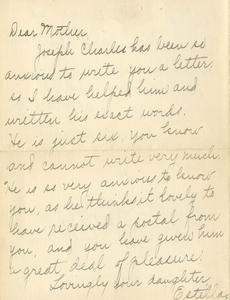 Dear Mother
Joseph Charles has been so
anxious to write you a letter.
so I have helped him and
written his exact words.
He is just six. you know
and cannot write very much.
He is so very anxious to know
you, as he thinks it lovely to
have received a postal from
you, and you have given him
a great deal of pleasure.
Lovingly your daughter,
Estella